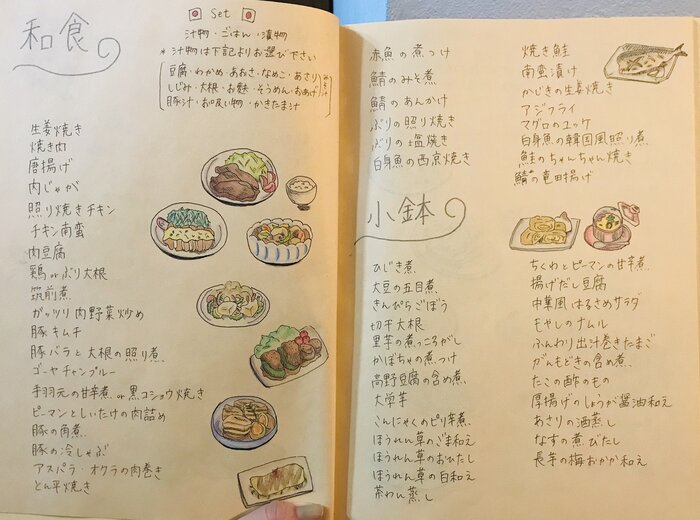 和食
Set
汁物・ごはん・漬物
*汁物は下記よりお選び下さい
豆腐・わかめ・あおさ・なめこ・あさり
しじみ・大根・お麩・そうめん・おあげ
豚汁・お吸い物・かきたま汁
みそ汁
生姜焼き
焼き肉
唐揚げ
肉じゃが
照り焼きチキン
チキン南蛮
肉豆腐
鶏orぶり大根
筑前煮
ガッツリ肉野菜炒め
豚キムチ
豚バラと大根の照り煮
ゴーヤチャンプルー
手羽元の甘辛煮or黒コショウ焼き
ピーマンとしいたけの肉詰め
豚の角煮
豚の冷しゃぶ
アスパラ・オクラの肉巻き
とん平焼き
赤魚の煮つけ
鯖のみそ煮
鯖のあんかけ
ぶりの照り焼き
ぶりの塩焼き
白身魚の西京焼き
焼き鮭
南蛮漬け
かじきの生姜焼き
アジフライ
マグロのユッケ
白身魚の韓国風照り煮
鮭のちゃんちゃん焼き
鯖の竜田揚げ
小鉢
ひじき煮
大豆の五目煮
きんぴらごぼう
切干大根
里芋の煮っころがし
かぼちゃの煮つけ
高野豆腐の含め煮
大学芋
こんにゃくのピリ辛煮
ほうれん草のごま和え
ほうれん草のおひたし
ほうれん草の白和え
茶わん蒸し
ちくわとピーマンの甘辛煮
揚げだし豆腐
中華風はるさめサラダ
モヤシのナムル
ふんわり出汁巻きたまご
がんもどきの含め煮
たこの酢のもの
厚揚げのしょうが醤油和え
あさりの酒蒸し
なすの煮びたし
長芋の梅おかか和え